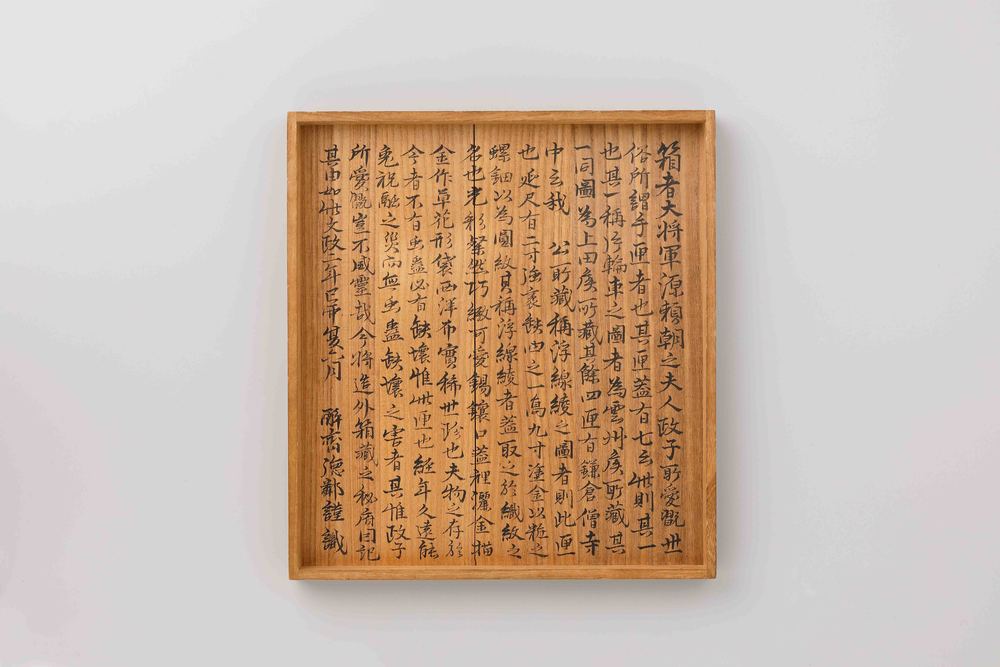 箱者大将軍源頼朝之夫人政子所愛翫世
俗所謂手匣者也其匣蓋有七云此則其一
也其一稱片輪車之圖者為雲州侯所藏其
一同圖為上田侯所藏其餘四匣有鎌倉僧寺
中云哉 公貯藏稱浮線綾之圖者則此匣
也延尺有二寸強袤缺四之一高九寸塗金以粧之
螺鈿以為圓紋其稱浮線綾者蓋取之於織紋之
名也光彩粲然巧緻可愛錫鑲口蓋裡灑金描
金作草花形袋西洋布實稀世珍也夫物之存於
今者不有蟲蠹必有缺壞惟此匣也經年久遠能
免祝融之災而無蟲蠹缺壞之害者其惟政子
所愛翫豈不威靈哉今将造外箱藏之秘府因記
其由如此文政二年己卯夏六月 醉齋德鄰謹識